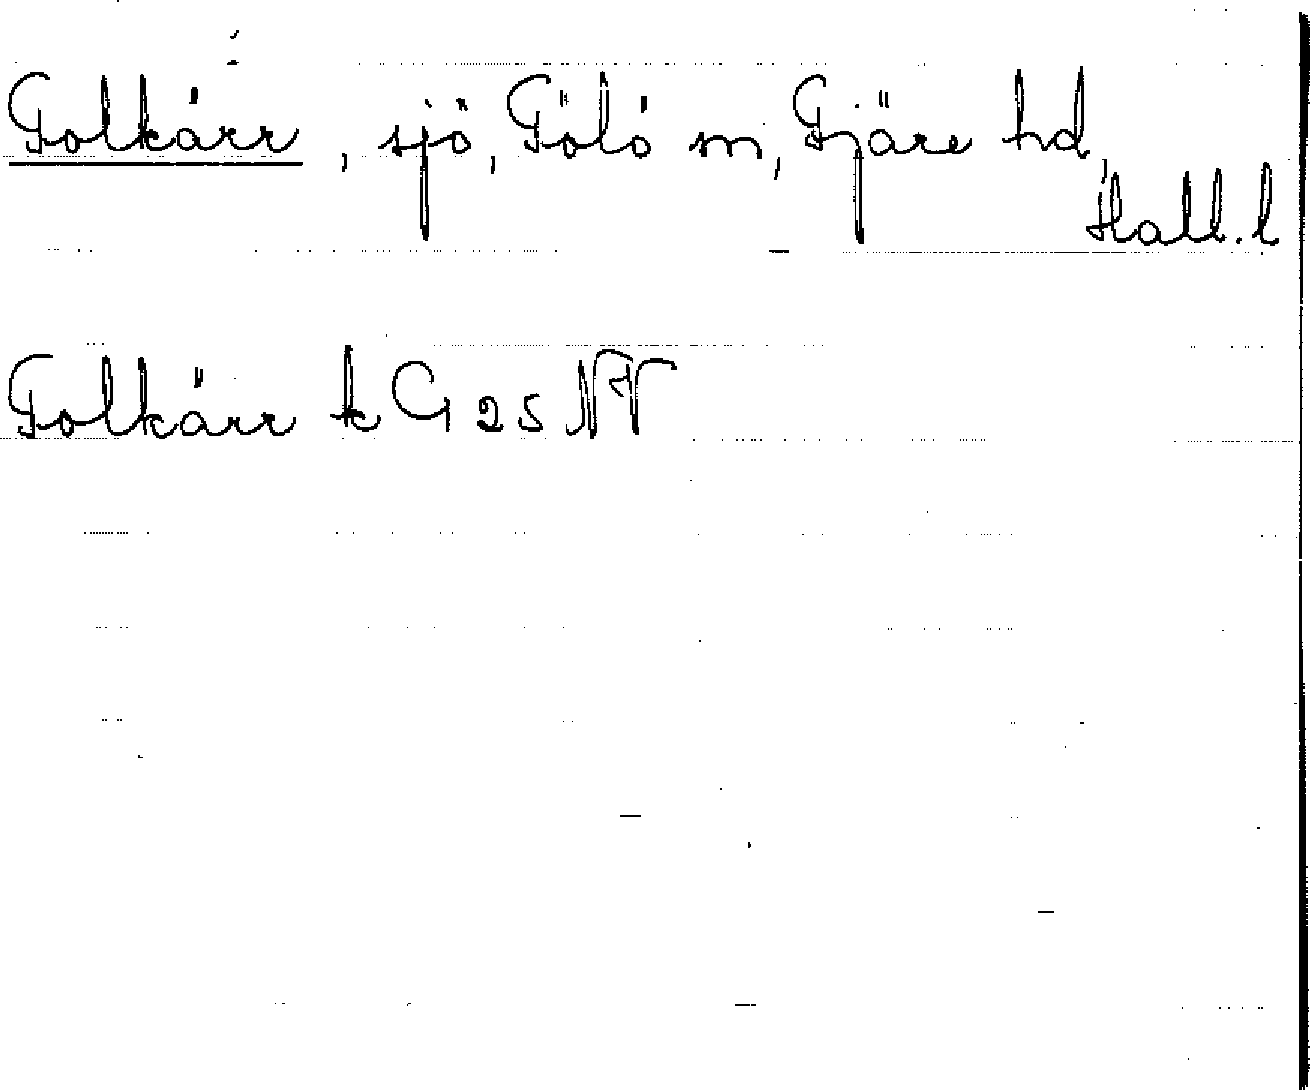 Folkärr, sjö, Fölö sn, Fjäre hd,
Hall. l
Folkärr k G 25 NV